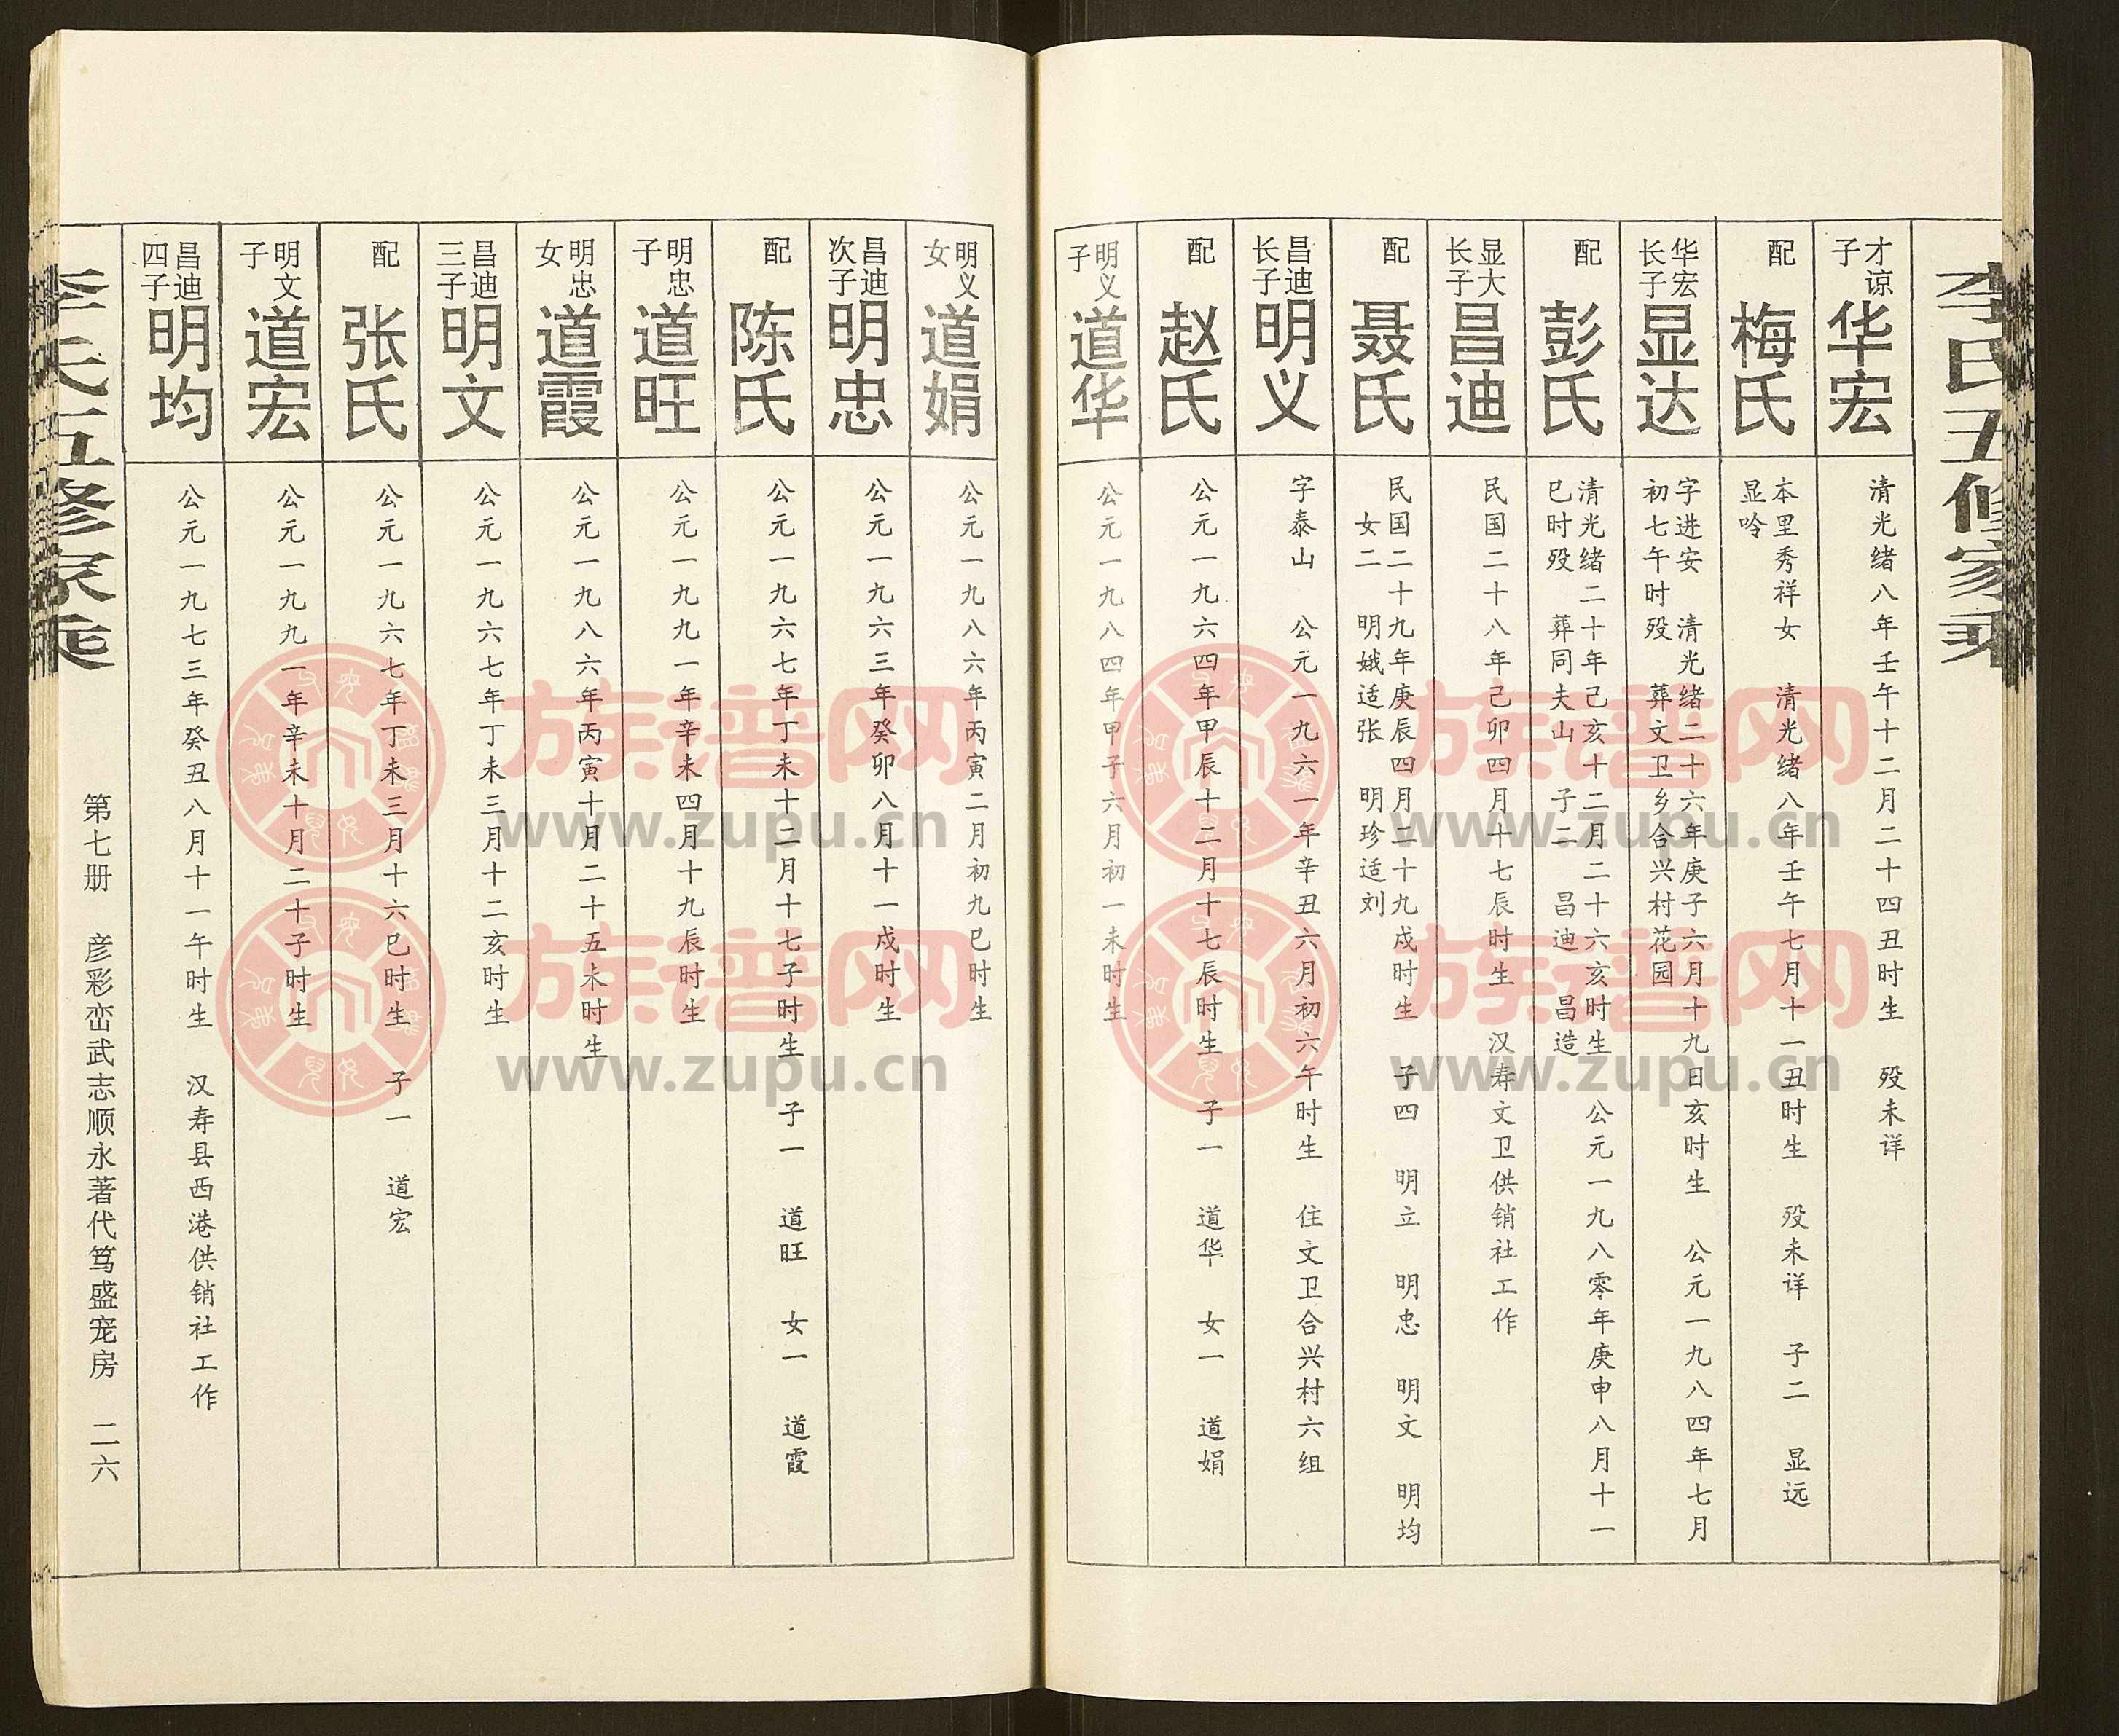 李氏五修家乘
才谅子
华宏
清光绪八年壬午十二月二十四丑时生 殁未详
配
梅氏
本里秀祥女 清光绪八年壬午七月十一丑时生 殁未详 子二 显远
显呤
华宏长子
显达
字进安 清光绪二十六年庚子六月十九日亥时生 公元一九八四年七月
初七午时殁 葬文卫乡合兴村花园
配
彭氏
清光绪二十年己亥十二月二十六亥时生 公元一九八零年庚申八月十一
巳时殁 葬同夫山 子二 昌迪 昌造
显大长子
昌迪
民国二十八年己卯四月十七辰时生 汉寿文卫供销社工作
配
聂氏
民国二十九年庚辰四月二十九戌时生 子四 明立 明忠 明文 明均
女二 明娥适张 明珍适刘
昌迪长子
明义
字泰山 公元一九六一年辛丑六月初六午时生 住文卫合兴村六组
配
赵氏
公元一九六四年甲辰十二月十七辰时生 子一 道华 女一 道娟
明义子
道华
公元一九八四年甲子六月初一未时生
明义女
道娟
公元一九八六年丙寅二月初九巳时生
昌迪次子
明忠
公元一九六三年癸卯八月十一戌时生
配
陈氏
公元一九六七年丁未十二月十七子时生 子一 道旺 女一 道霞
明忠子
道旺
公元一九九一年辛未四月十九辰时生
明忠女
道霞
公元一九八六年丙寅十月二十五未时生
昌迪三子
明文
公元一九六七年丁未三月十二亥时生
配
张氏
公元一九六七年丁未三月十六巳时生 子一 道宏
明文子
道宏
公元一九九一年辛未十月二十子时生
昌迪四子
明均
公元一九七三年癸丑八月十一午时生 汉寿县西港供销社工作
李氏五修家乘
第七册 彦彩峦武志顺永著代笃盛宠房 二六
族谱网
www.zupu.cn
族谱网
www.zupu.cn
族谱网
www.zupu.cn
族谱网
www.zupu.cn